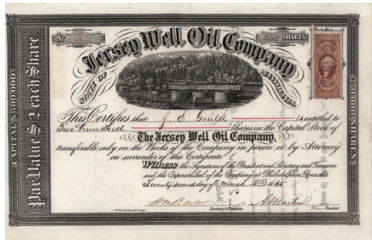 SHARES
Jersey Well Oil Company
STATE OF
CAPITAL $500,000
Par Value $2 each Share.
250,000 SHARES
This Certifies that J. E. Gould is entitled to
Two hundred Shares in the Capital Stock of
The Jersey Well Oil Company,
transferable only on the Books of the Company in person or by Attorney
on surrender of this Certificate
Witness the Signatures of the President and Secretary and Treasurer
and the Corporate Seal of the Company at Philadelphia, Penna. this
Twenty second day of March A.D. 1865
President